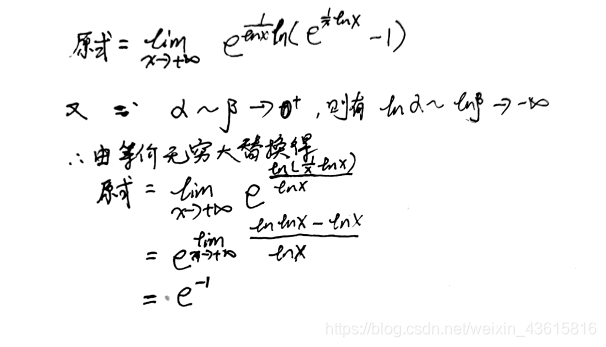 原式 = lim x→+∞ e^(1/lnx ln(e^(1/x lnx) - 1))
又 ∵ α ~ β → 0⁺, 则有 ln α ~ lnβ → -∞
∴ 由等价无穷大替换得
原式 = lim x→+∞ e^(ln(1/x lnx)/lnx)
= e^(lim x→+∞ (ln lnx - lnx)/lnx)
= e⁻¹
https://blog.csdn.net/weixin_43615816